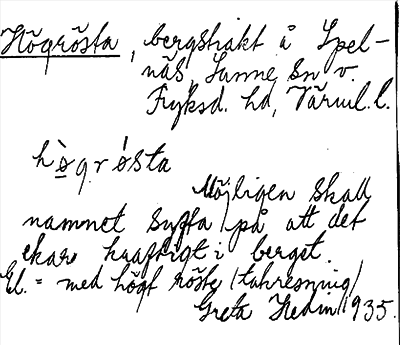 Högrösta, bergstrakt å Spel-
näs, Sunne sn v.
Fryksd. hd, Värml. l.
hø̀grǿsta
Möjligen skall
namnet syfta på att det
ekar kraftigt i berget.
El. = med högt röste (takresning)
Greta Hedin 1935.